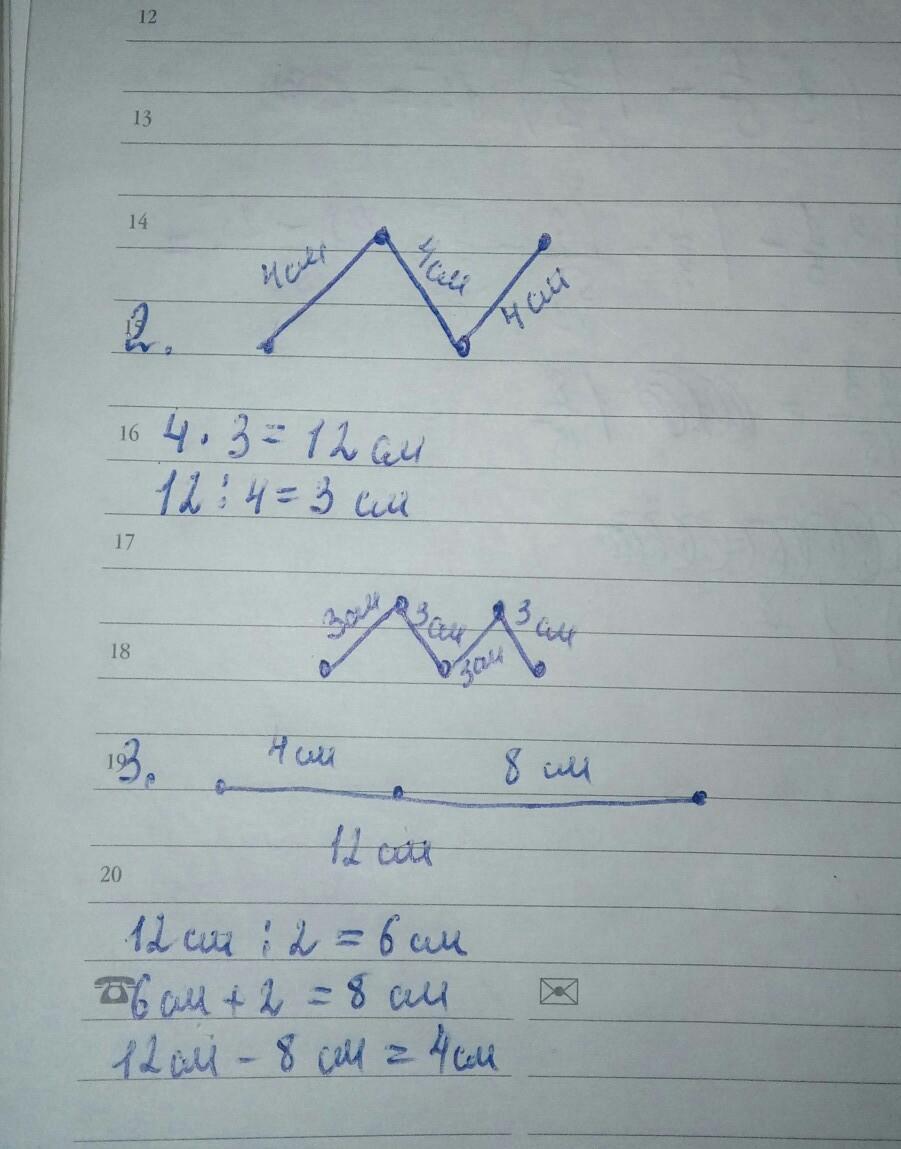 12
13
14
4см 4см 4см
15
2.
16 4 · 3 = 12 см
12 : 4 = 3 см
17
3см 3см 3см 3см
18
19
3. 4см 8 см
12 см
20
12 см : 2 = 6 см
6 см + 2 = 8 см
12 см - 8 см = 4см